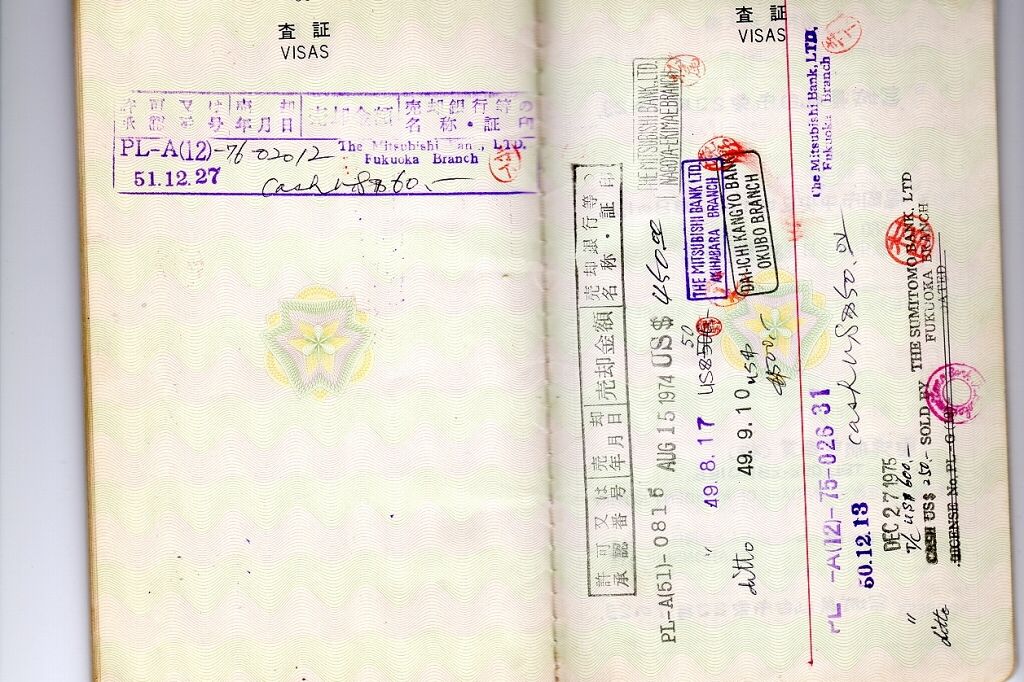 査証
VISAS
許可又は承認番号
売却年月日
売却金額
売却銀行等の名称・証印
PL-A(12)-76-02012
The Mitsubishi Bank, LTD.
Fukuoka Branch
51.12.27
cash US$60.-
査証
VISAS
許可又は承認番号
売却年月日
売却金額
売却銀行等の名称・証印
PL-A(51)-0815 AUG 15 1974 US$ 450.00
THE MITSUBISHI BANK LTD.
NAGOYA-EKIMAE BRANCH
〃 49.8.17 US$500.- 50
THE MITSUBISHI BANK LTD.
AKIHABARA BRANCH
ditto 49.9.10 US$ 500.-
DAI-ICHI KANGYO BANK
OKUBO BRANCH
PL-A(12)-75-026 31
The Mitsubishi Bank, LTD.
Fukuoka Branch
50.12.13 cash US$50.00
DEC 27 1975
〃 T/C US$600.-
ditto CASH US$ 250.- SOLD BY THE SUMITOMO BANK. LTD
FUKUOKA BRANCH
LICENSE No. PL-O(12) DATED